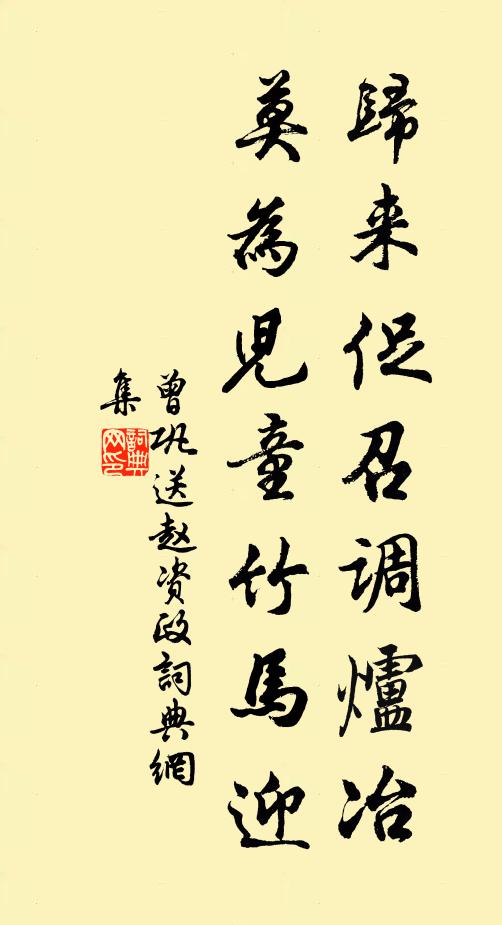 歸来促召調爐冶
莫為児童竹馬迎
曾巩送赵资政詞典網
集
詞典
网印